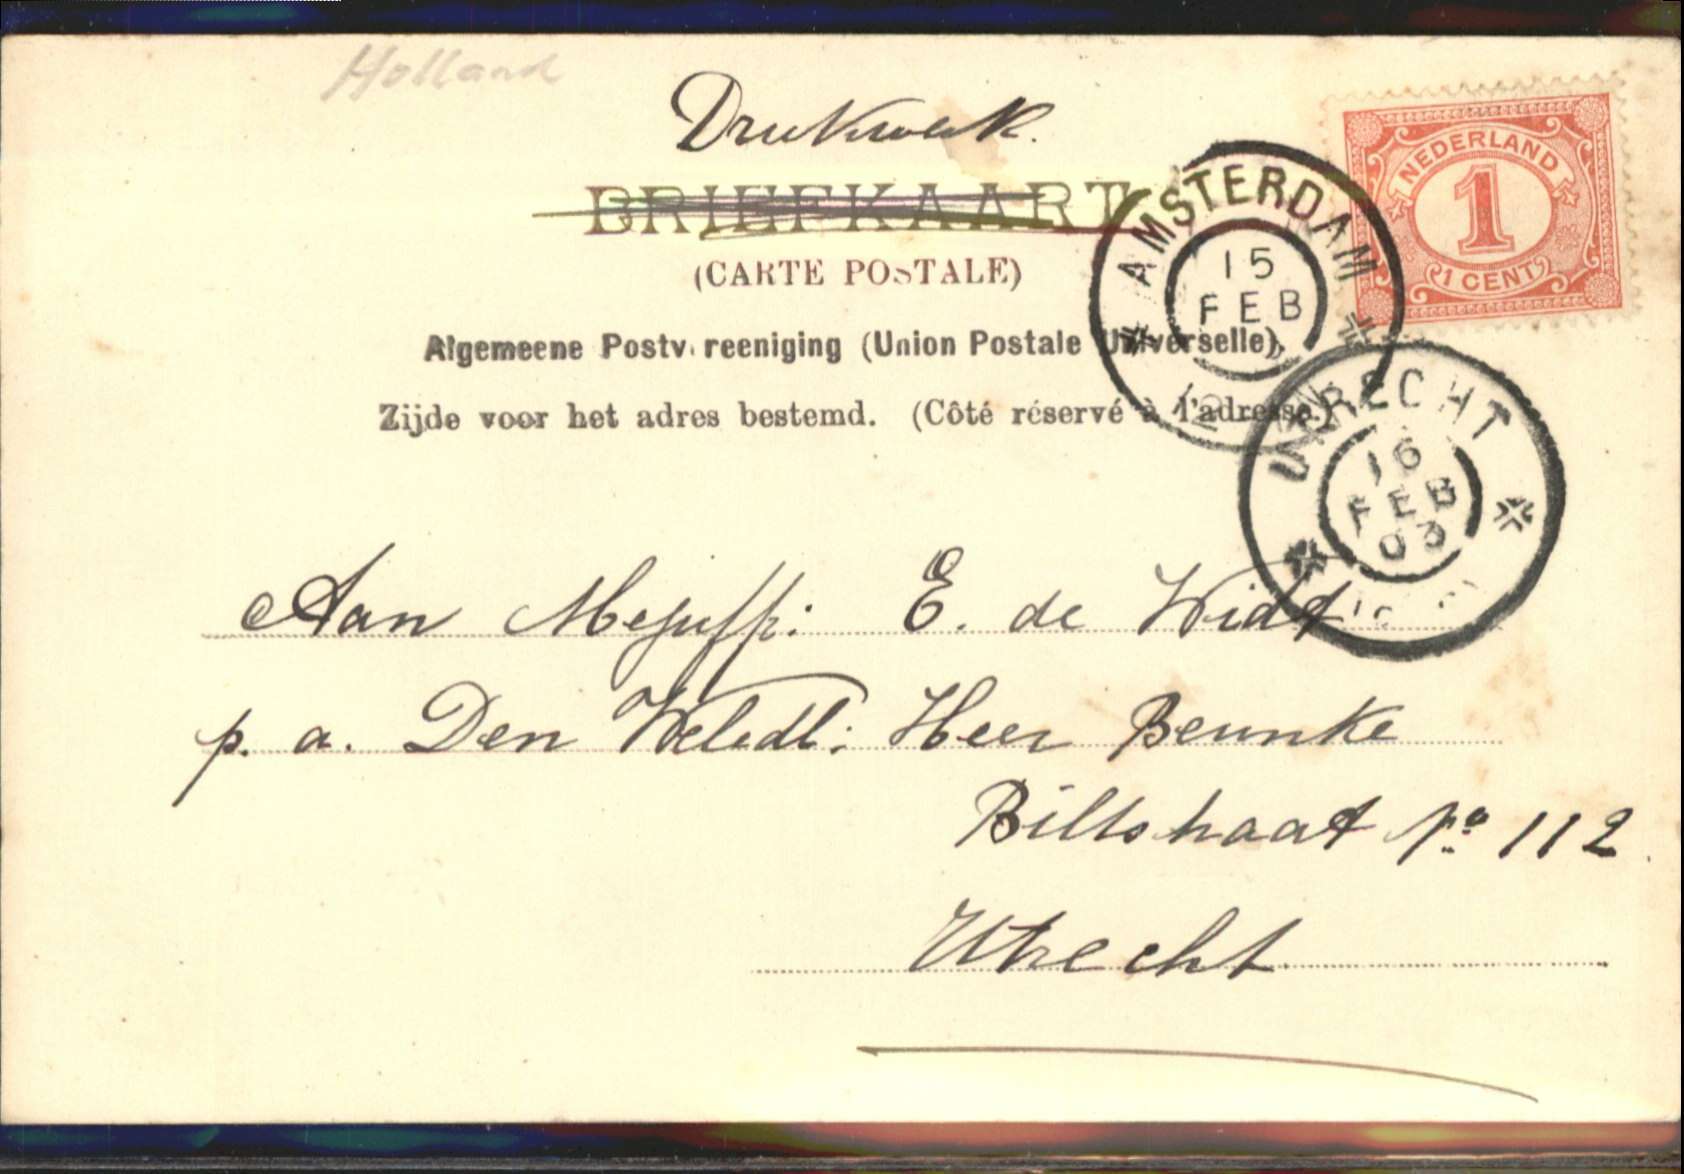 Holland
Drukwerk.
BRIEFKAART
(CARTE POSTALE)
Algemeene Postvereeniging (Union Postale Universelle).
Zijde voor het adres bestemd. (Côté réservé à l'adresse.)
NEDERLAND
1
1 CENT
AMSTERDAM
15
FEB
UTRECHT
16
FEB
03
Aan Mejuffr: E. de Widt
p. a. Den Weledl: Heer Beunke
Biltstraat No 112
Utrecht